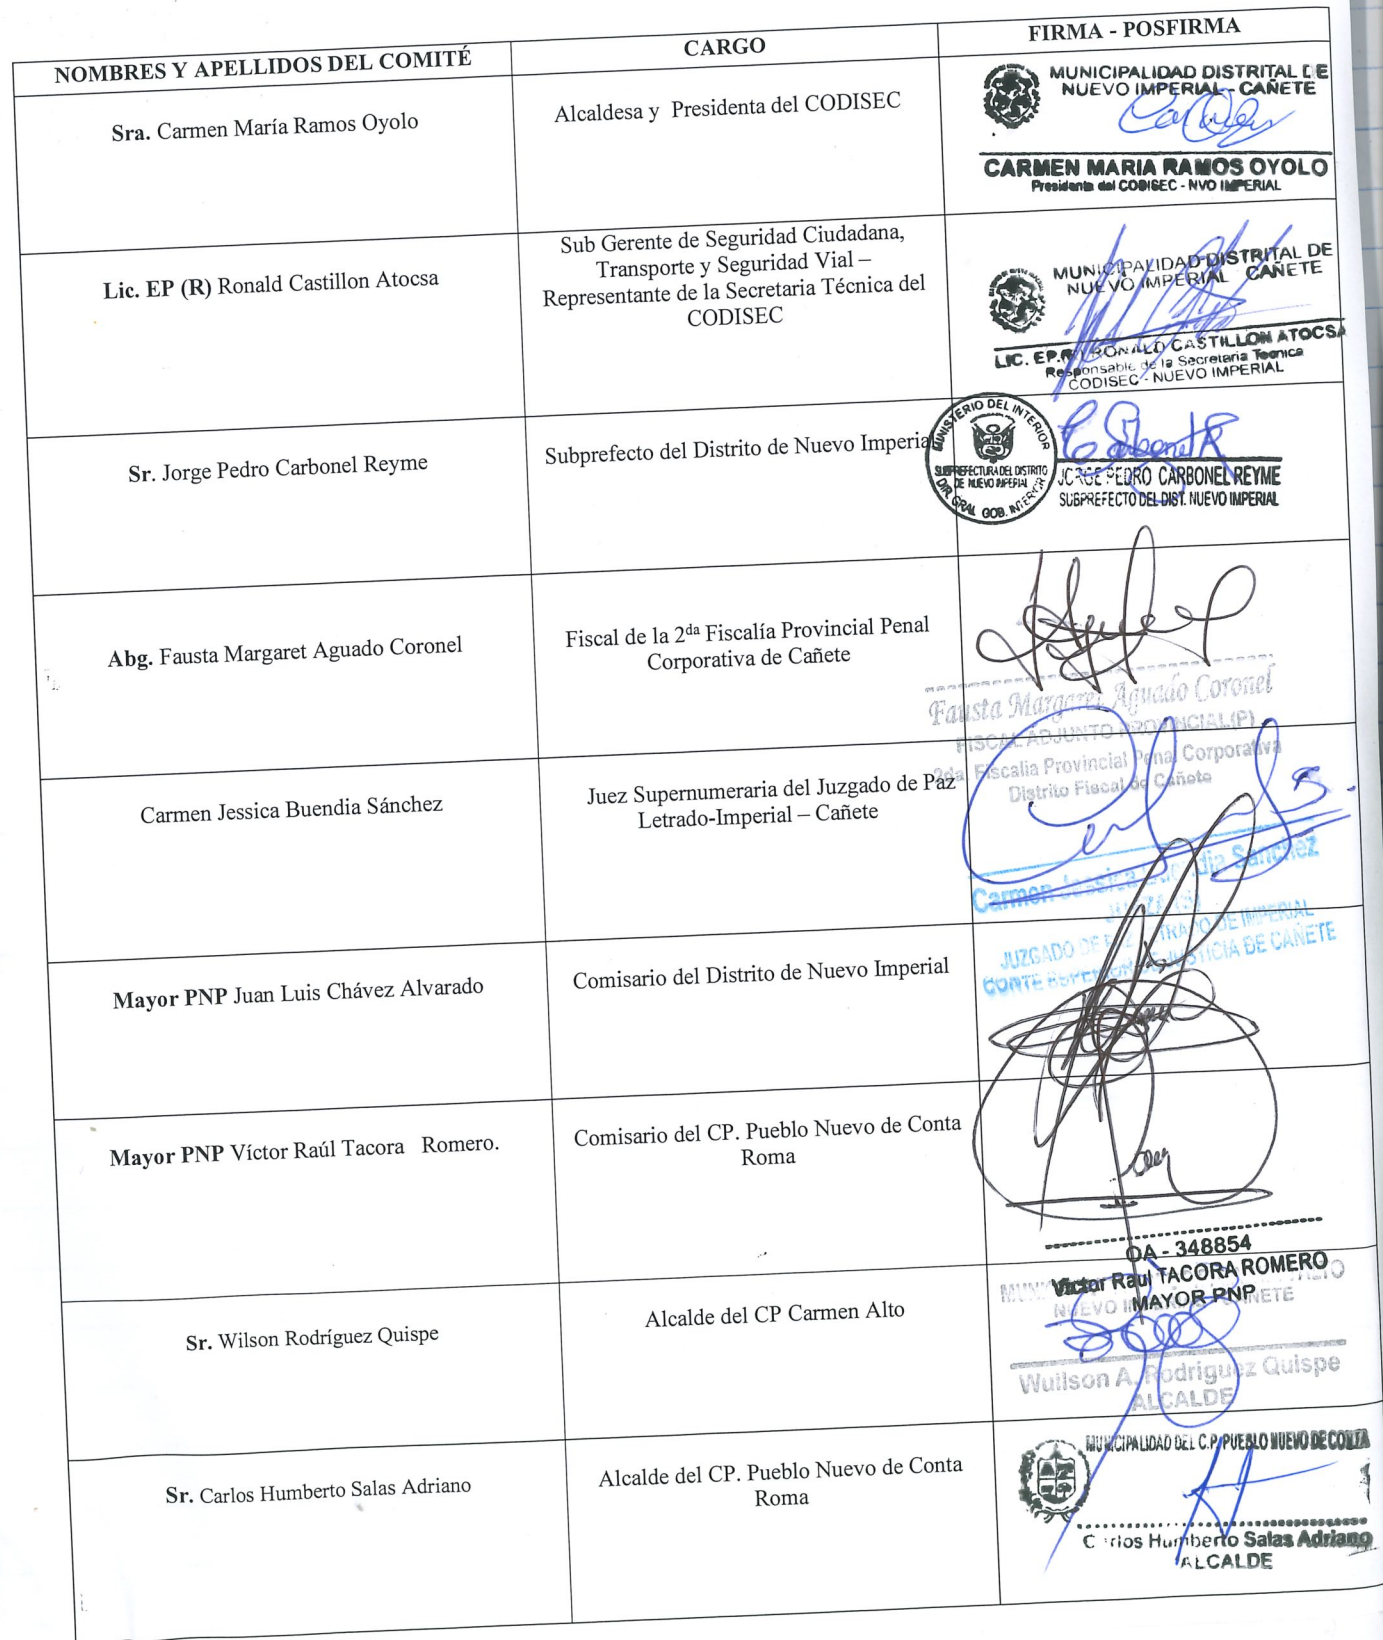 NOMBRES Y APELLIDOS DEL COMITÉ
CARGO
FIRMA - POSFIRMA
Sra. Carmen María Ramos Oyolo
Alcaldesa y Presidenta del CODISEC
MUNICIPALIDAD DISTRITAL DE
NUEVO IMPERIAL - CAÑETE
CARMEN MARIA RAMOS OYOLO
Presidenta del CODISEC - NVO IMPERIAL
Lic. EP (R) Ronald Castillon Atocsa
Sub Gerente de Seguridad Ciudadana,
Transporte y Seguridad Vial –
Representante de la Secretaria Técnica del
CODISEC
MUNICIPALIDAD DISTRITAL DE
NUEVO IMPERIAL CAÑETE
LIC. EP.R RONALD CASTILLON ATOCSA
Responsable de la Secretaria Tecnica
CODISEC - NUEVO IMPERIAL
Sr. Jorge Pedro Carbonel Reyme
Subprefecto del Distrito de Nuevo Imperial
MINISTERIO DEL INTERIOR
SUBPREFECTURA DEL DISTRITO
DE NUEVO IMPERIAL
DIR. GRAL. GOB. INTERIOR
JORGE PEDRO CARBONEL REYME
SUBPREFECTO DEL DIST. NUEVO IMPERIAL
Abg. Fausta Margaret Aguado Coronel
Fiscal de la 2da Fiscalía Provincial Penal
Corporativa de Cañete
Fausta Margaret Aguado Coronel
FISCAL ADJUNTO PROVINCIAL(P)
2da Fiscalia Provincial Penal Corporativa
Distrito Fiscal de Cañete
Carmen Jessica Buendia Sánchez
Juez Supernumeraria del Juzgado de Paz
Letrado-Imperial – Cañete
Carmen Jessica Buendia Sanchez
JUZGADO DE PAZ LETRADO DE IMPERIAL
CORTE SUPERIOR DE JUSTICIA DE CAÑETE
Mayor PNP Juan Luis Chávez Alvarado
Comisario del Distrito de Nuevo Imperial
Mayor PNP Víctor Raúl Tacora Romero.
Comisario del CP. Pueblo Nuevo de Conta
Roma
OA - 348854
Victor Raul TACORA ROMERO
MAYOR PNP
Sr. Wilson Rodríguez Quispe
Alcalde del CP Carmen Alto
Wuilson A. Rodriguez Quispe
ALCALDE
Sr. Carlos Humberto Salas Adriano
Alcalde del CP. Pueblo Nuevo de Conta
Roma
MUNICIPALIDAD DEL C.P. PUEBLO NUEVO DE CONTA
Carlos Humberto Salas Adriano
ALCALDE